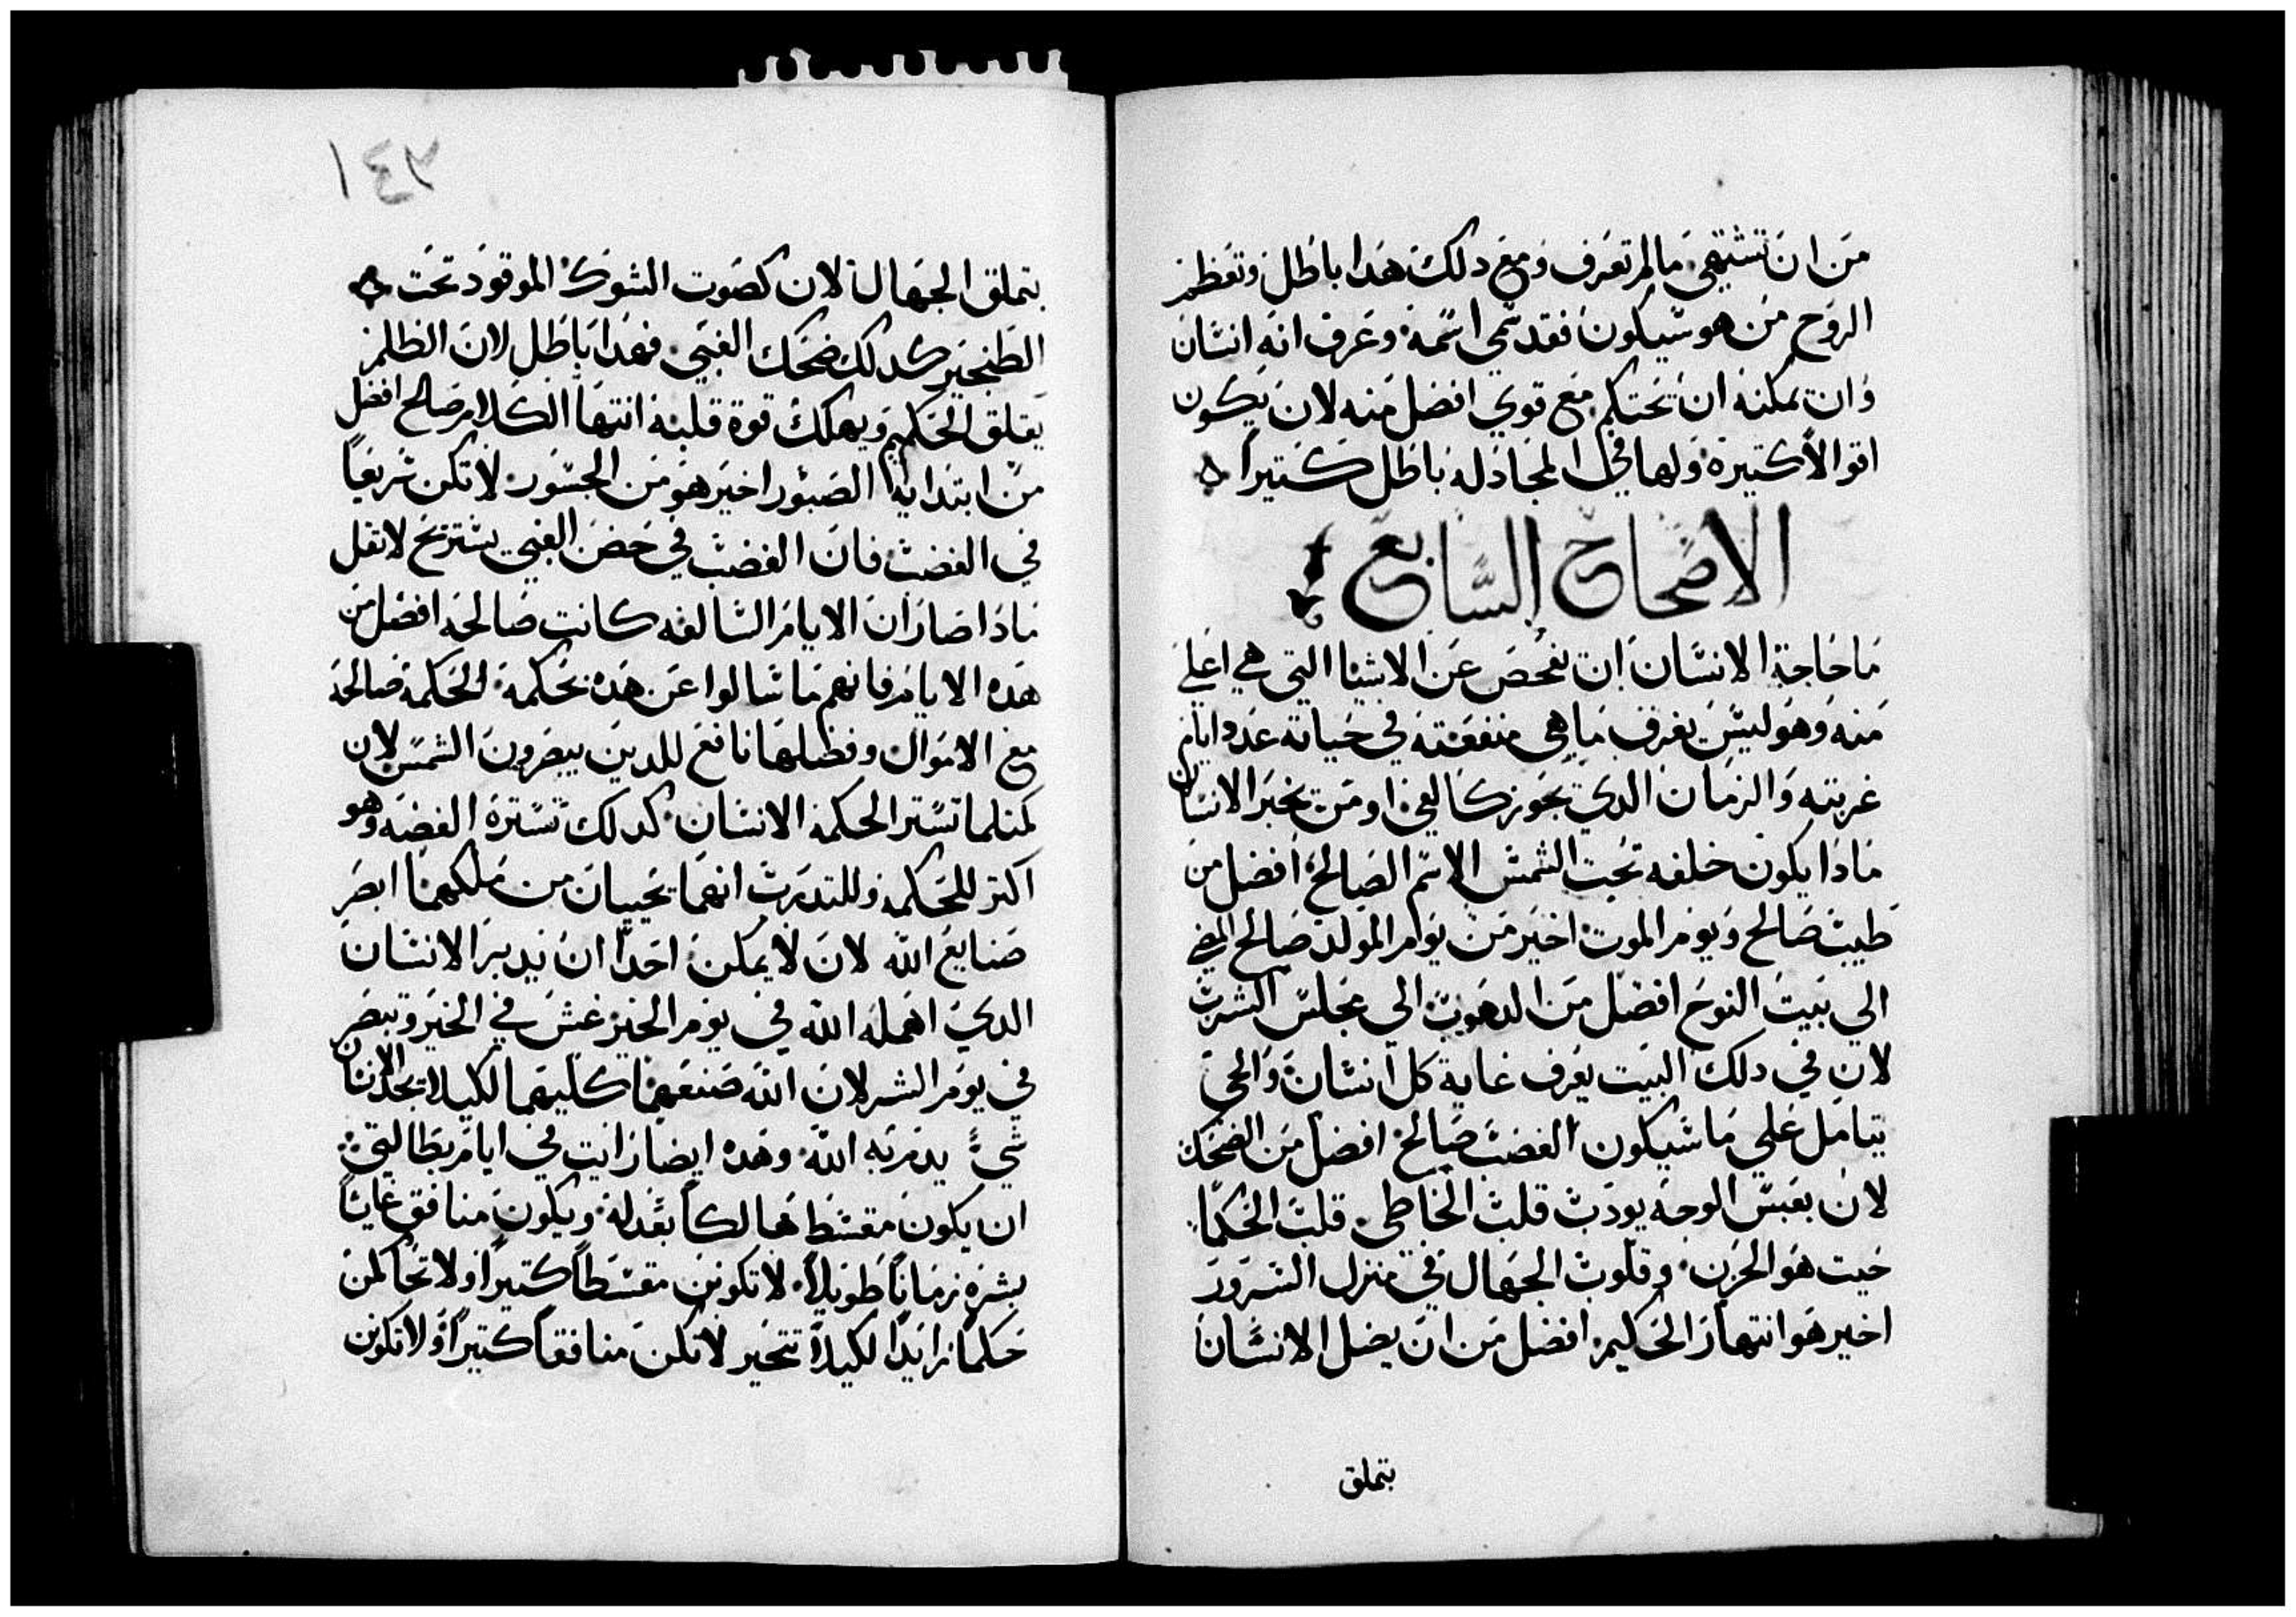 من ان تشتهي مالم تعرف ومع دلك هدا باطل وتعظم
الروح من هو سيكون فقد سمي اسمه وعرف انه انسان
وان يمكنه ان يحتكم مع قوي افضل منه لان يكون
اقوالا كتيرة ولها في المجادله باطل كتيراً
الاصحاح السابع
ما حاجة الانسان ان يفحص عن الاشيا التي هي اعلي
منه وهو ليس يعرف ما هي منفعته في حياته عدد ايام
غربته والزمان الدي يجوز كالفي او من يخبر الانسان
مادا يكون خلفه تحت الشمس الاسم الصالح افضل من
طيب صالح ويوم الموت اخير من يوم المولد صالح المضي
الي بيت النوح افضل من الدهوب الي مجلس الشرب
لان في دلك البيت يعرف غاية كل انسان والحي
يتامل علي ما سيكون الغضب صالح افضل من الضحك
لان بعبس الوجه يودب قلب الخاطي قلب الحكما
حيت هو الحزن وقلوب الجهال في منزل السرور
اخير هو انتهار الحكيم افضل من ان يضل الانسان
بتملق
١٤٢
بتملق الجهال لان كصوت الشوك الموقود تحت
الطنجير كدلك ضحك الغبي فهدا باطل لان الظلم
يقلق الحكيم ويهلك قوة قلبه انتها الكلام صالح افضل
من ابتدايه الصبور اخير هو من الجسور لا تكن سريعاً
في الغضب فان الغضب في حضن الغبي يستريح لا تقل
مادا صار ان الايام السالفه كانت صالحه افضل من
هده الايام فانهم ما سالوا عن هده بحكمة الحكمة صالحة
مع الاموال وفضلها نافع للدين يبصرون الشمس لان
كمتلما تستر الحكمة الانسان كدلك تستره الفضه وهو
اكتر للحكمه وللتدرب انهما يحييان من ملكهما ابصر
صنايع الله لان لا يمكن احداً ان يدبر الانسان
الدي اهمله الله في يوم الخير غش في الخير وتبصر
في يوم الشر لان الله صنعهما كليهما لكيلا يجد الانسان
شيءً يدمر به الله وهده ايضا رايت في ايام بطالتي
ان يكون مقسط هالكاً بعدله ويكون منافق عايشاً
بشره زماناً طويلاً لا تكونن مقسطاً كتيراً ولا تحاكمن
حكماً زايدا لكيلا تتحير لا تكن منافقاً كتيراً ولا تكونن